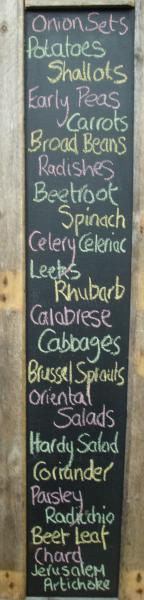 Onion Sets
Potatoes
Shallots
Early Peas
Carrots
Broad Beans
Radishes
Beetroot
Spinach
Celery Celeriac
Leeks
Rhubarb
Calabrese
Cabbages
Brussel Sprouts
Oriental
Salads
Hardy Salad
Coriander
Paisley
Radicchio
Beet Leaf
Chard
Jerusalem
Artichoke